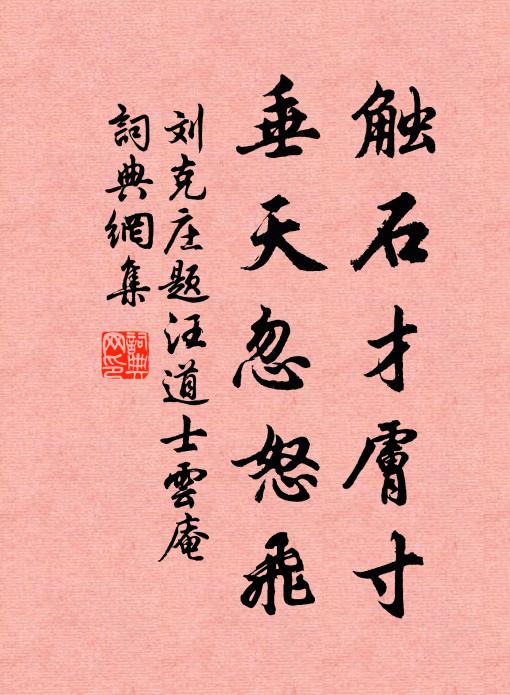 触石才膚寸
垂天忽怒飛
刘克庄题汪道士雲庵
詞典網集
詞典
网印